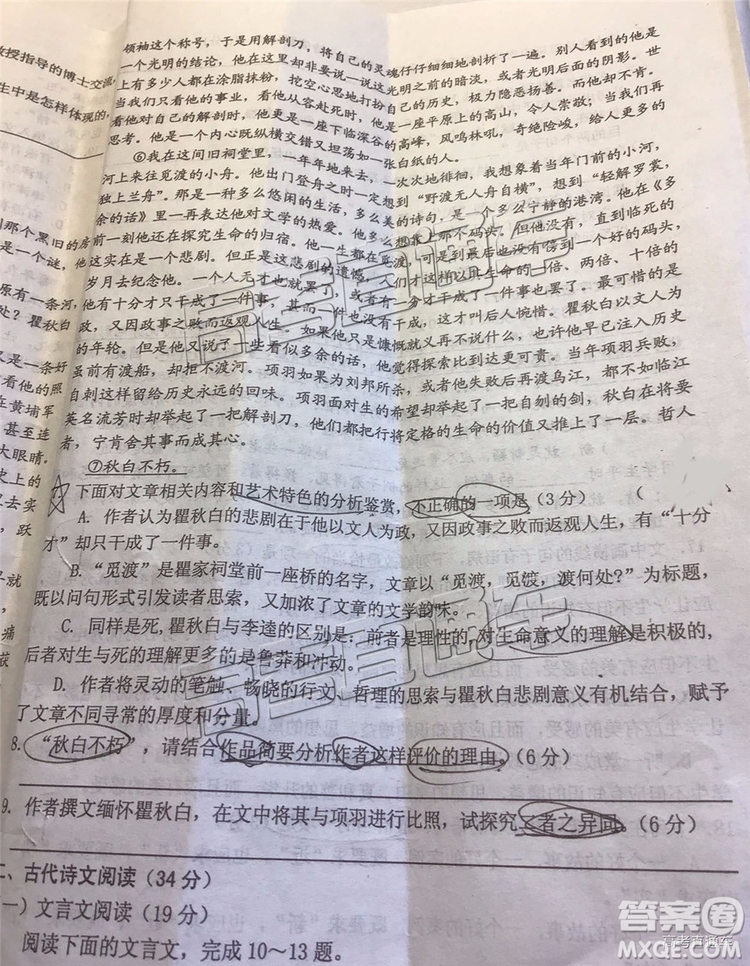 领袖这个称号，于是用解剖刀，将自己的灵魂仔仔细细地剖析了一遍。别人看到的他是
教授指导的博士交流，一个光明的结论，他在这里却非要说一说这光明之前的暗淡，或者光明后面的阴影。世
上有多少人都在涂脂抹粉，挖空心思地打扮自己的历史，极力隐恶扬善。而他
生中是怎样体现的，当我们只看他的事业，看他从容赴死时，他是一座平原上的高山，令人崇敬；当我们再
看他对自己的解剖时，他更是一座下临深谷的高峰，风鸣林吼，奇绝险峻，给人更多的
思考。他是一个内心既纵横交错又坦荡如一张白纸的人。
⑥我在这间旧祠堂里，一年年地来去，一次次地徘徊，我想象着当年门前的小河，
河上来往觅渡的小舟。他出门登舟之时一定想到“野渡无人舟自横”，想到“轻解罗裳，
独上兰舟”。那是一种多么悠闲的生活，多么美的诗句，是一个多么宁静的港湾。他在《多
余的话》里一再表达他对文学的热爱。他多么想靠上那个码头。但他没有，直到临死的
那个黑旧的房 前一刻他还在探究生命的归宿。他一生都在觅渡，可是到最后也没有傍到一个好的码头，
是一个谜，他 这实在是一个悲剧。但正是这悲剧的遗憾，人们才这样以其生命的一倍、两倍、十倍的
岁月去纪念他。一个人无才也就罢了，或者有一分才干成了一件事也罢了。最可惜的是
原有一条河，他有十分才只干成了一件事，甚而一件也没有干成，这才叫后人惋惜。瞿秋白以文人为
处？瞿秋白 政，又因政事之败而返观人生。如果他只是慷慨就义再不说什么，也许他早已没入历史
的年轮。但他又说了一些看似多余的话，他觉得探索比到达更可贵。当年项羽兵败，
是一条好 虽前有渡船，却拒不渡河。项羽如果为刘邦所杀，或者他失败后再渡乌江，都不如临江
看他的照 自刎这样留给历史永远的回味。项羽面对生的希望却举起了一把自刎的剑，秋白在将要
在黄埔军 英名流芳时却举起了一把解剖刀，他们都将行将定格的生命的价值又推上了一层。哲人
者，宁肯舍其事而成其心。
⑦秋白不朽。
下面对文章相关内容和艺术特色的分析鉴赏，不正确的一项是（3分） （
A. 作者认为瞿秋白的悲剧在于他以文人为政，又因政事之败而返观人生，有“十分
才”却只干成了一件事。
B. “觅渡”是瞿家祠堂前一座桥的名字，文章以“觅渡，觅渡，渡何处？”为标题，
既以问句形式引发读者思索，又加浓了文章的文学韵味。
C. 同样是死，瞿秋白与李逵的区别是：前者是理性的，对生命意义的理解是积极的，
后者对生与死的理解更多的是鲁莽和冲动。
D. 作者将灵动的笔触、畅晓的行文、哲理的思索与瞿秋白悲剧意义有机结合，赋予
了文章不同寻常的厚度和分量。
8. “秋白不朽”，请结合作品简要分析作者这样评价的理由。（6分）
9. 作者撰文缅怀瞿秋白，在文中将其与项羽进行比照，试探究二者之异同。（6分）
二、古代诗文阅读（34分）
一）文言文阅读（19分）
阅读下面的文言文，完成10～13题。
答案圈
MXQE.COM